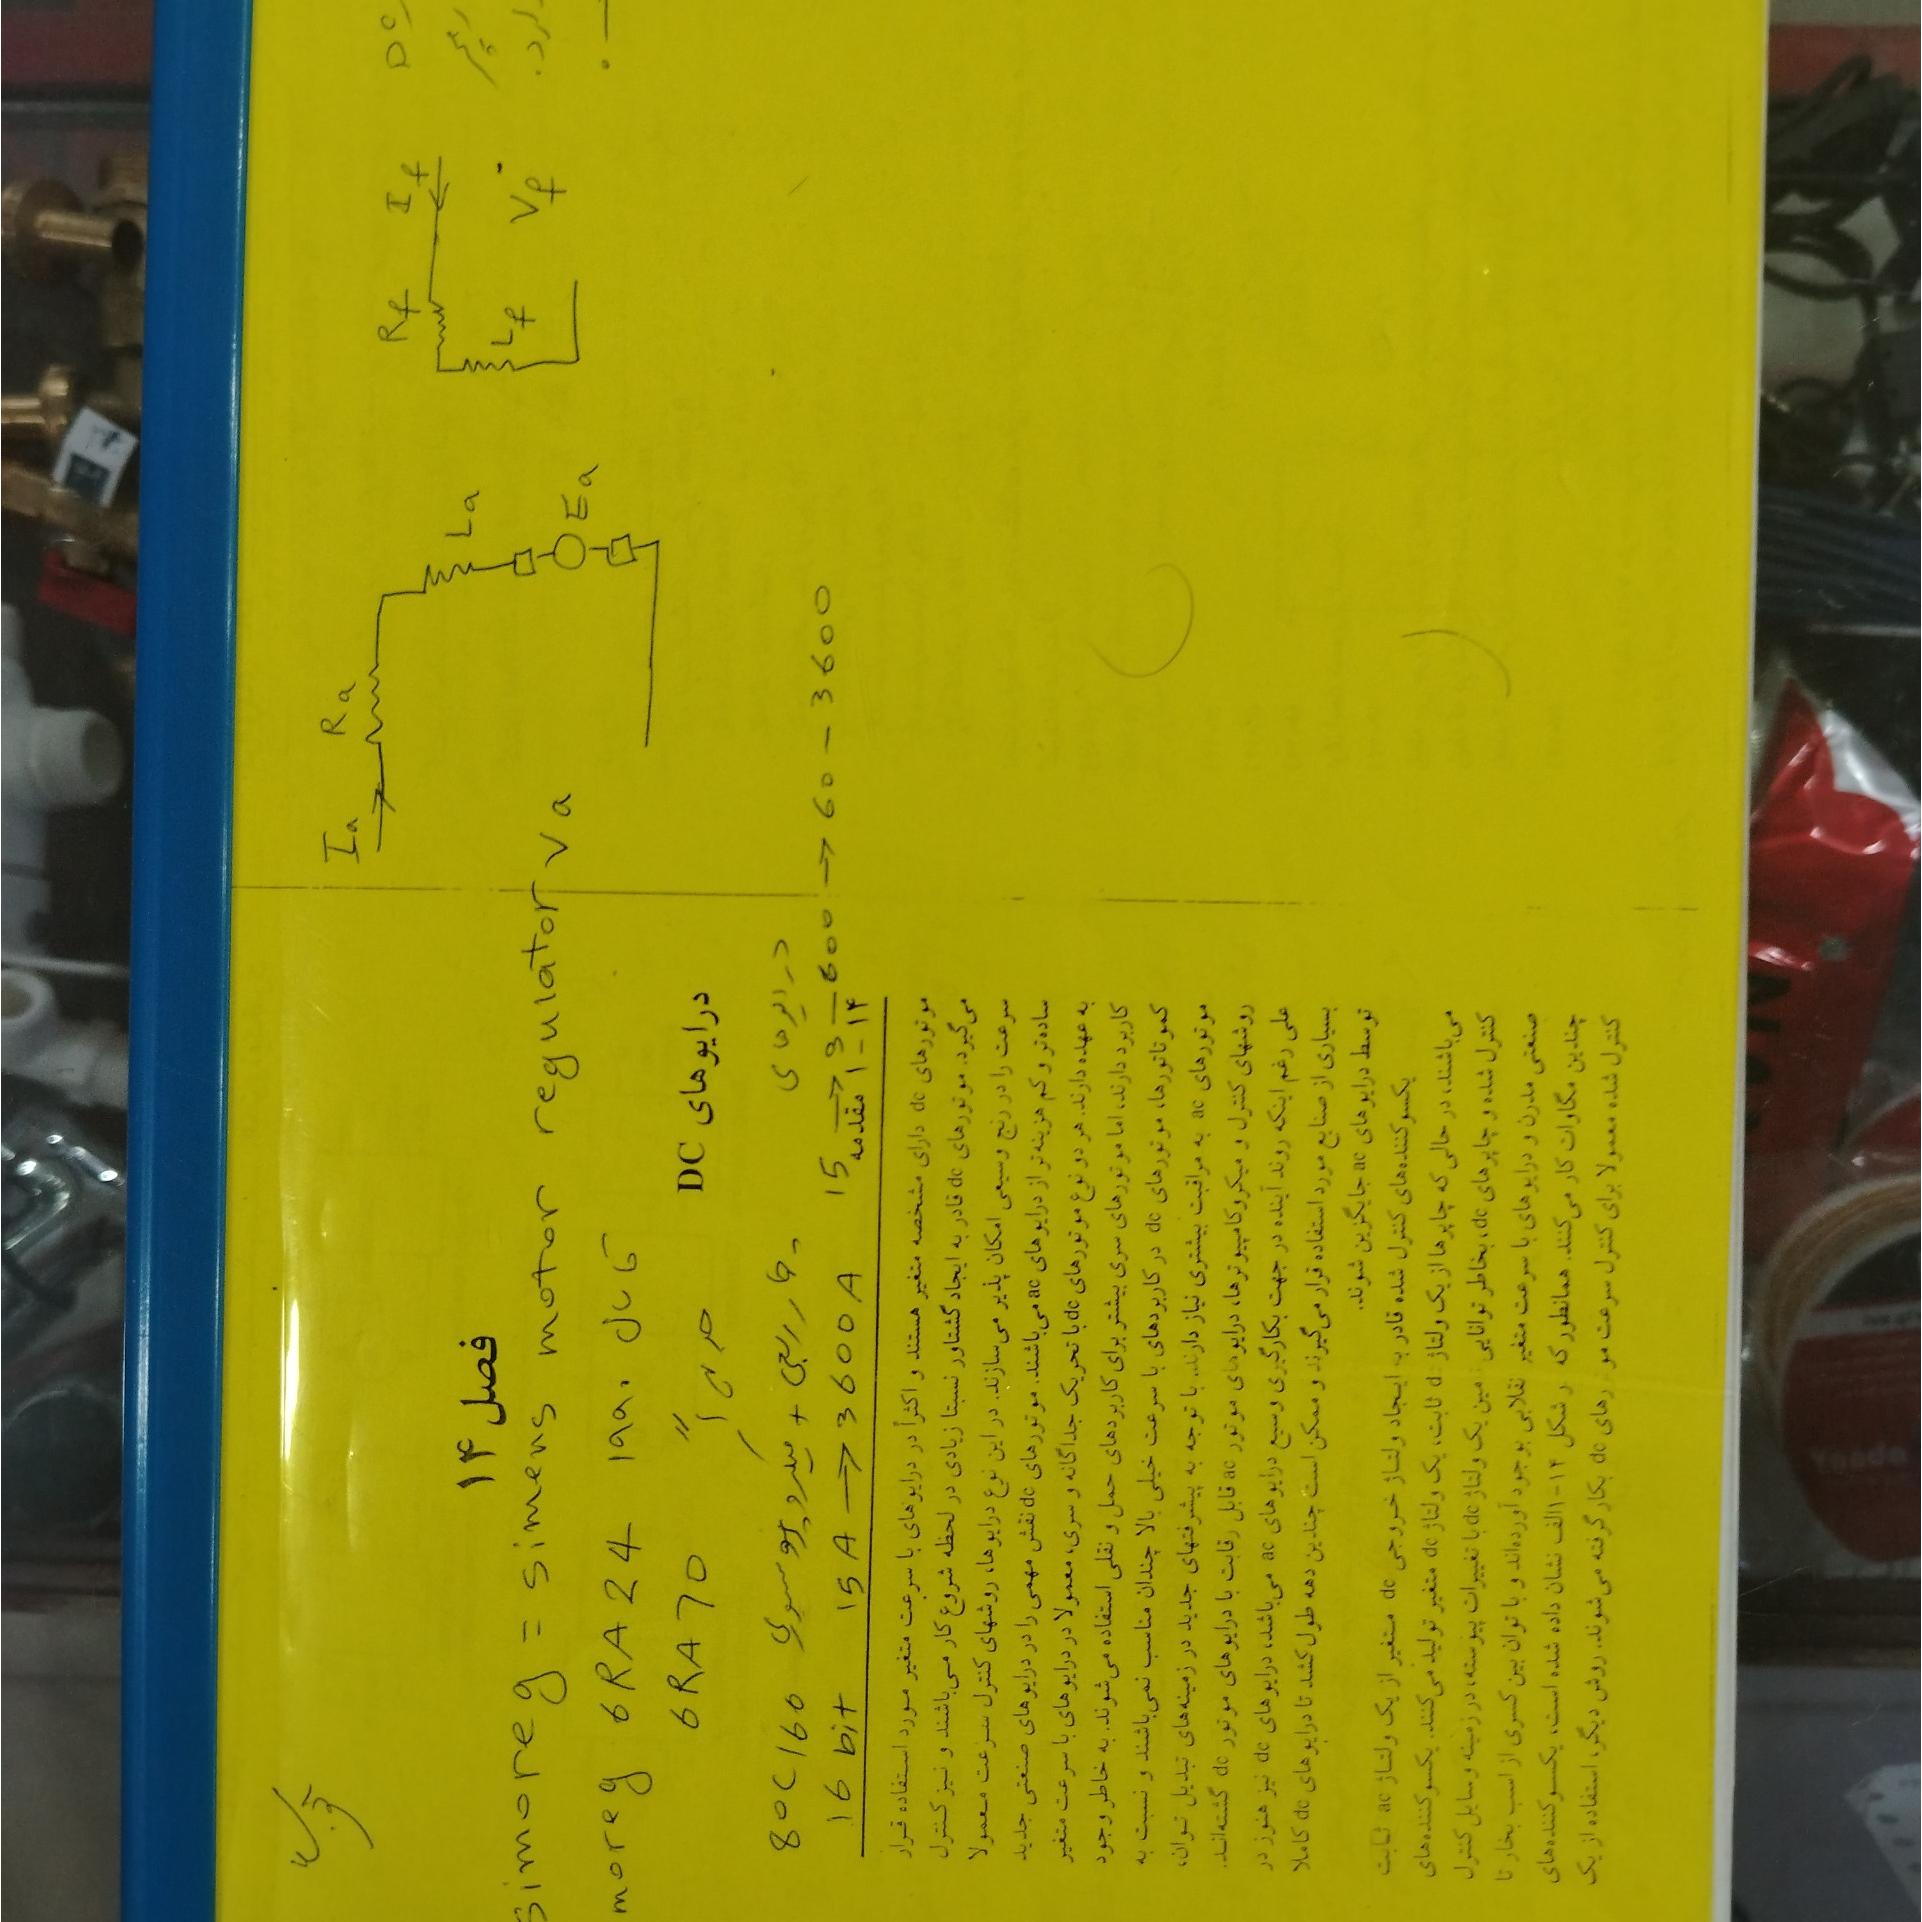 Simoreg = simens motor regulator
moreg 6RA24
6RA70
80C166
16 bit 15A → 3600A 15 → 600 → 60 - 3600
Ia Ra
La
Ea
Va
Rf If
Lf Vf
DC
فصل ۱۴
درایوهای DC
۱-۱۴ مقدمه
موتورهای dc دارای مشخصه متغیر هستند و اکثراً در درایوهای با سرعت متغیر مورد استفاده قرار
می‌گیرد. موتورهای dc قادر به ایجاد گشتاور نسبتا زیادی در لحظه شروع کار می‌باشند و نیز کنترل
سرعت را در رنج وسیعی امکان پذیر می‌سازند. در این نوع درایوها، روشهای کنترل سرعت معمولا
ساده‌تر و کم هزینه‌تر از درایوهای ac می‌باشند. موتورهای dc نقش مهمی را در درایوهای صنعتی جدید
به عهده دارند. هر دو نوع موتورهای dc با تحریک جداگانه و سری، معمولا در درایوهای با سرعت متغیر
کاربرد دارند، اما موتورهای سری بیشتر برای کاربردهای حمل و نقلی استفاده می‌شوند. به خاطر وجود
کموتاتورها، موتورهای dc در کاربردهای با سرعت خیلی بالا چندان مناسب نمی‌باشند و نسبت به
موتورهای ac به مراقبت بیشتری نیاز دارند. با توجه به پیشرفتهای جدید در زمینه‌های تبدیل توان،
روشهای کنترل و میکروکامپیوترها، درایوهای موتور ac قابل رقابت با درایوهای موتور dc گشته‌اند.
علی رغم اینکه روند آینده در جهت بکارگیری وسیع درایوهای ac می‌باشد، درایوهای dc نیز هنوز در
بسیاری از صنایع مورد استفاده قرار می‌گیرند و ممکن است چندین دهه طول بکشد تا درایوهای dc کاملا
توسط درایوهای ac جایگزین شوند.
یکسوکننده‌های کنترل شده قادر به ایجاد ولتاژ خروجی dc متغیر از یک ولتاژ ac ثابت
می‌باشند، در حالی که چاپرها از یک ولتاژ d ثابت، یک ولتاژ dc متغیر تولید می‌کنند. یکسوکننده‌های
کنترل شده و چاپرهای dc، بخاطر توانایی یک ولتاژ dc با تغییرات پیوسته، در زمینه وسایل کنترل
صنعتی مدرن و درایوهای با سرعت متغیر بوجود آورده‌اند و با توان بین کسری از اسب بخار تا
چندین مگاوات کار می‌کنند. همانطور که شکل ۱-۱۴الف نشان داده شده است، یکسوکننده‌های
کنترل شده معمولا برای کنترل سرعت موتورهای dc بکار گرفته می‌شوند. روش دیگر، استفاده از یک